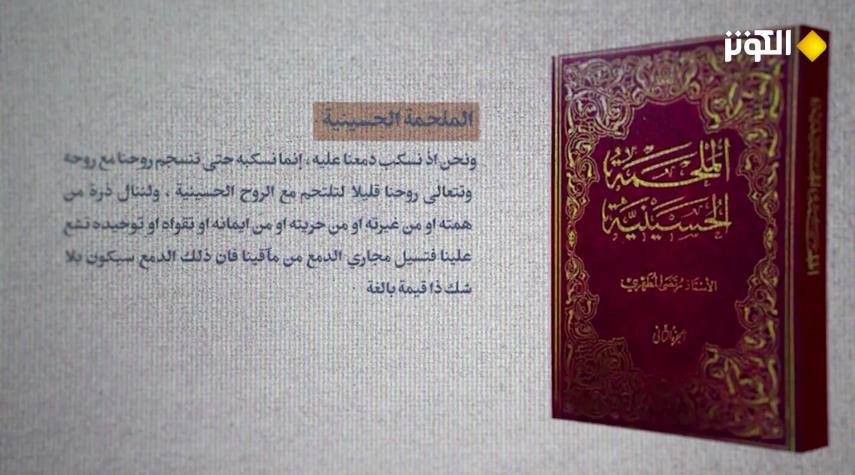 الكوثر
الملحمة الحسينية
ونحن اذ نسكب دمعنا عليه ، إنما نسكبه حتى تنسجم روحنا مع روحه
وتتعالى روحنا قليلا لتلتحم مع الروح الحسينية ، ولننال ذرة من
همته او من غيرته او من حريته او من ايمانه او تقواه او توحيده تشع
علينا فتسيل مجاري الدمع من مآقينا فان ذلك الدمع سيكون بلا
شك ذا قيمة بالغة .
الملحمة
الحسينية
الأستاذ مرتضى المطهري
الجزء الثاني